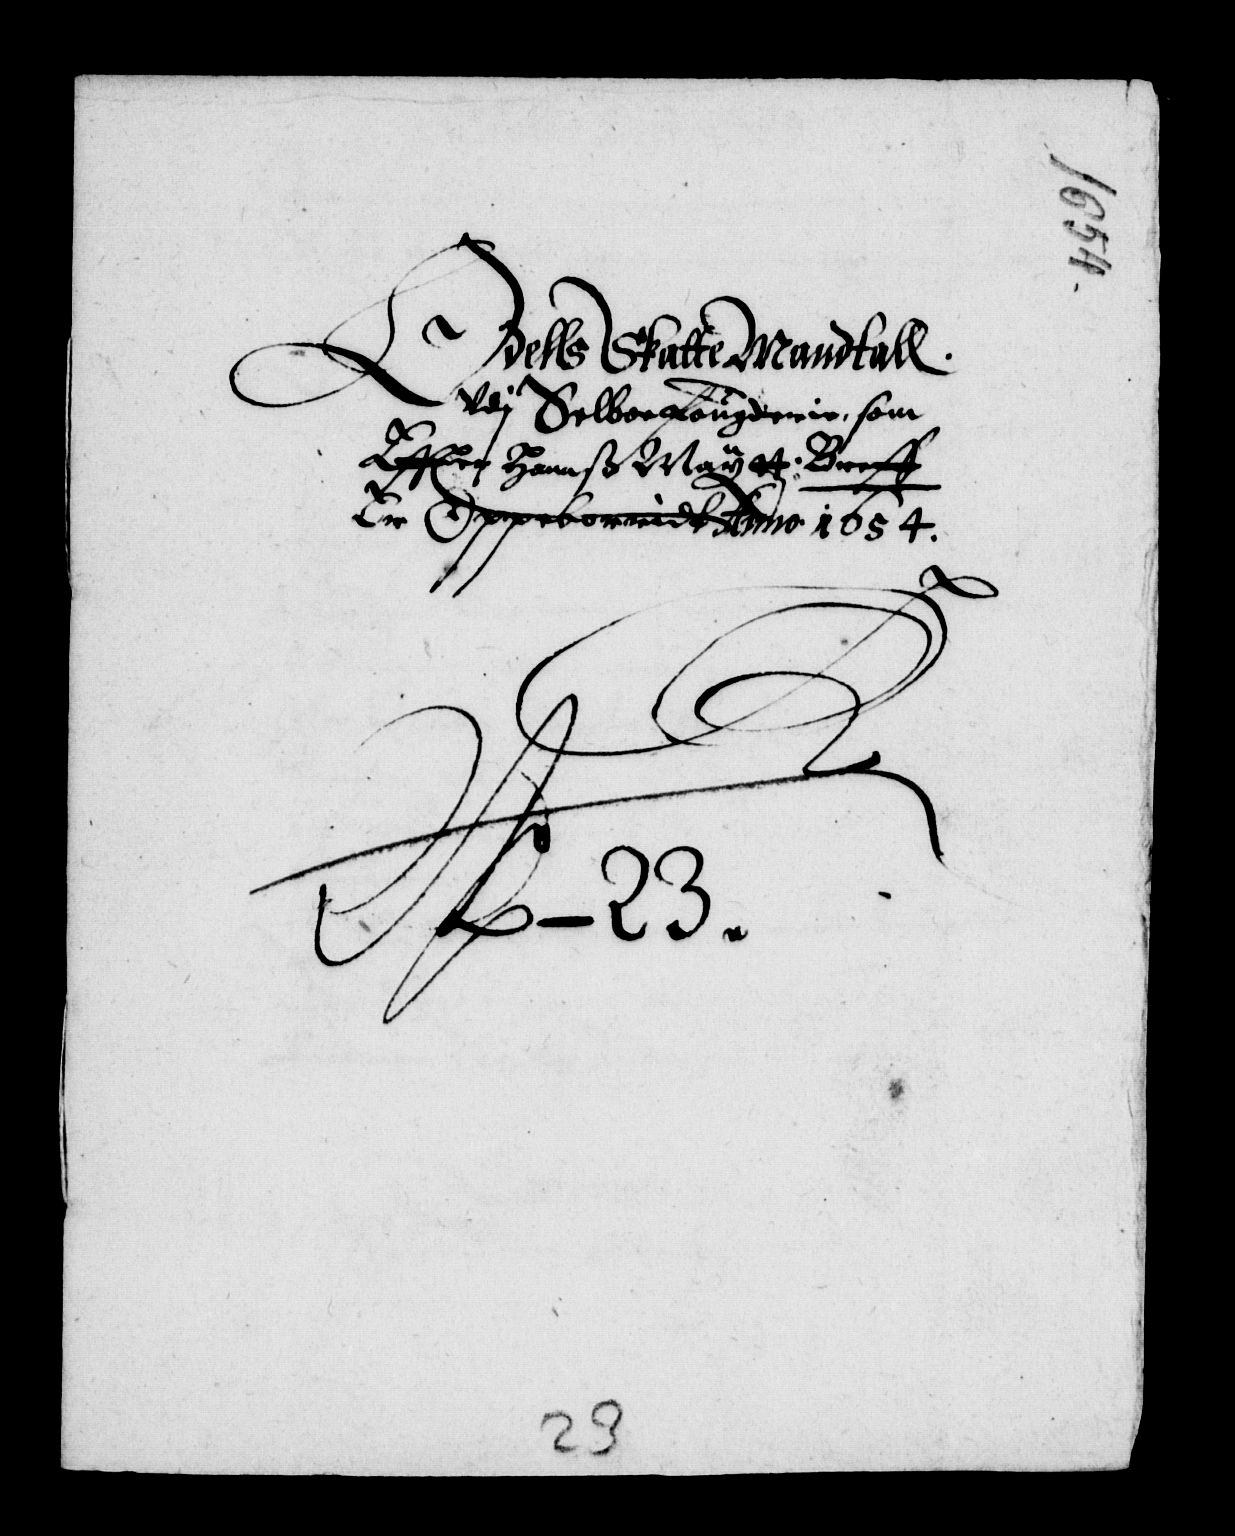 1654.
Odells Skatte Mandtall.
Vdj Selboe fougderie, som
Effter Hans Mayᵗᵗ: Breff
Er Oppeborridt Anno 1654.
N – 23.
29